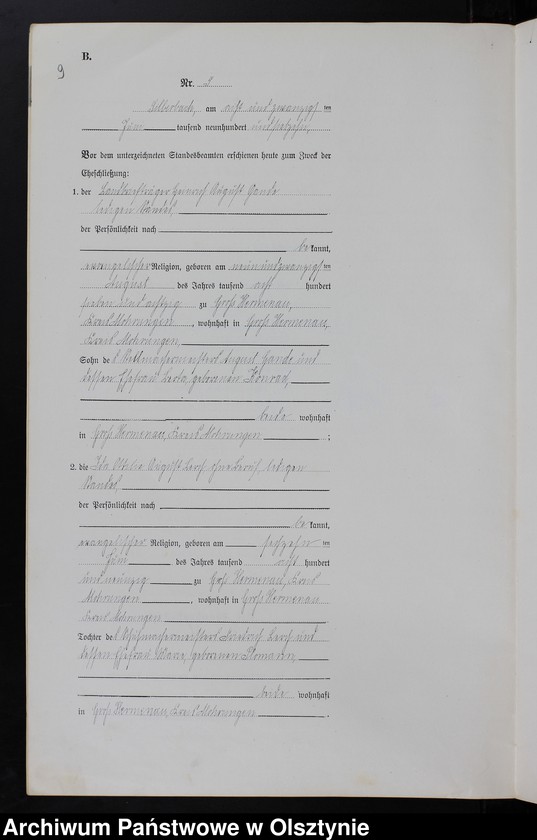 9
B.
Nr.
am acht und zwanzigsten
Juni tausend neunhundert
Vor dem unterzeichneten Standesbeamten erschienen heute zum Zweck der
Eheschließung:
1. der Landbriefträger Heinrich August Gande
ledigen Standes,
der Persönlichkeit nach
bekannt,
evangelischer Religion, geboren am neun und zwanzigsten
August des Jahres tausend acht hundert
sieben und achtzig zu Groß Hermenau,
Kreis Mohrungen, wohnhaft in Groß Hermenau,
Kreis Mohrungen
Sohn des August Gande und
dessen Ehefrau geborenen Konrad,
beide wohnhaft
in Groß Hermenau, Kreis Mohrungen ;
2. die Ida Ottilie August Lersch ohne Beruf, ledigen
Standes,
der Persönlichkeit nach
bekannt,
evangelischer Religion, geboren am sechzehnten
Juni des Jahres tausend acht hundert
und neunzig zu Groß Hermenau, Kreis
Mohrungen , wohnhaft in Groß Hermenau
Kreis Mohrungen
Tochter des Friedrich Lersch und
dessen Ehefrau geborenen
beide wohnhaft
in Groß Hermenau, Kreis Mohrungen .
Archiwum Państwowe w Olsztynie